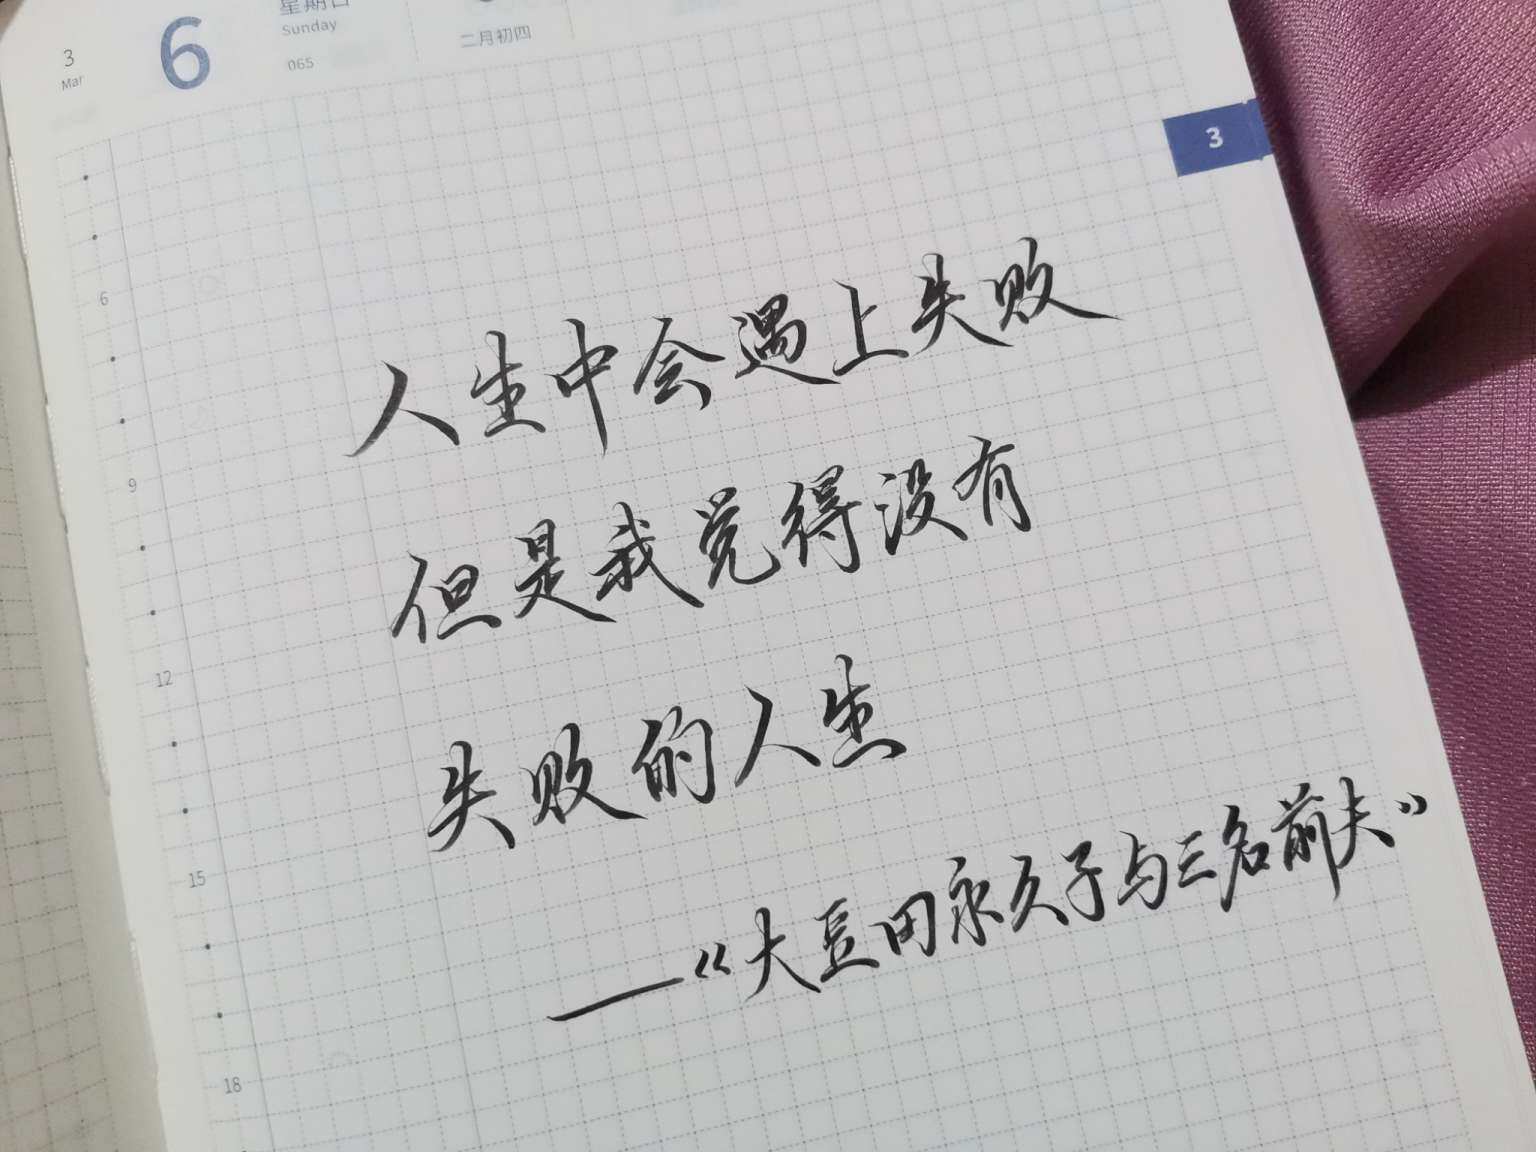 3
Mar
6
星期日
Sunday
065
二月初四
3
6
9
12
15
18
人生中会遇上失败
但是我觉得没有
失败的人生
——《大豆田永久子与三名前夫》